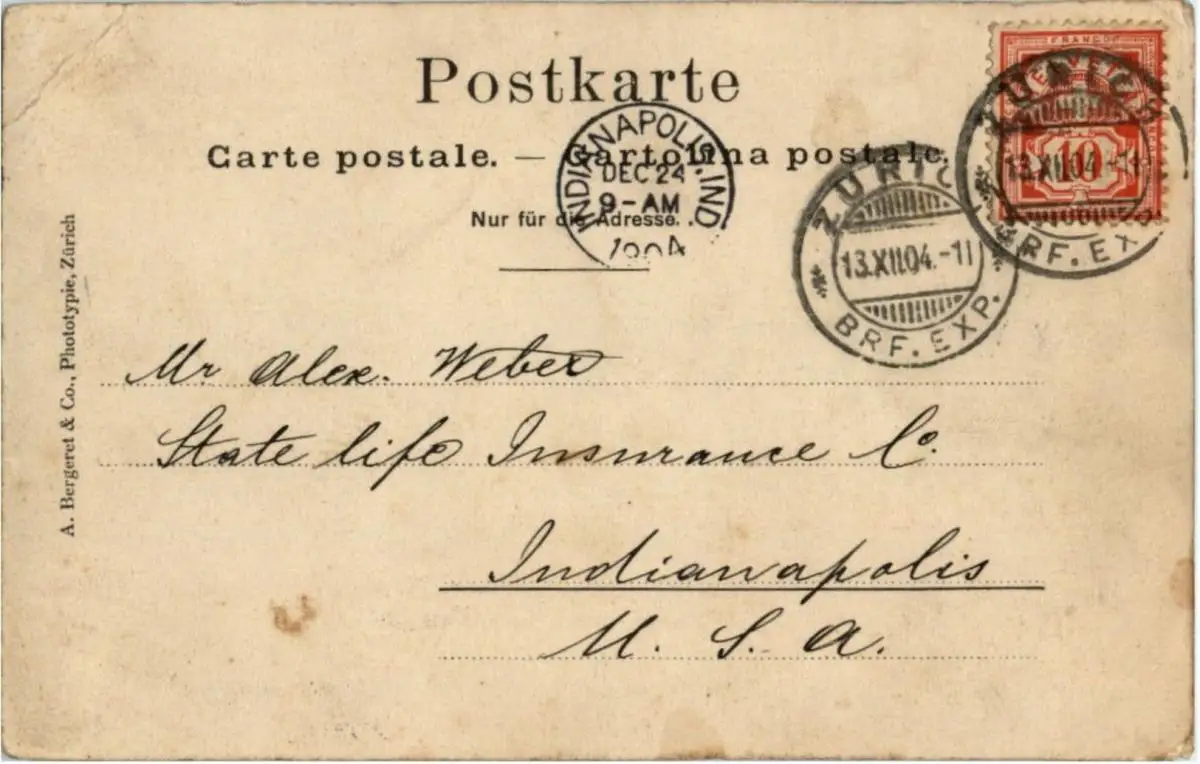 Postkarte
Carte postale. — Cartolina postale.
Nur für die Adresse.
INDIANAPOLIS, IND.
DEC 24
9-AM
1904
FRANCO
HELVETIA
10
ZÜRICH
13.XII.04.-11
BRF. EXP.
ZÜRICH
13.XII.04.-11
BRF. EXP.
A. Bergeret & Co., Phototypie, Zürich
Mr Alex. Weber
State life Insurance Co.
Indianapolis
U. S. A.